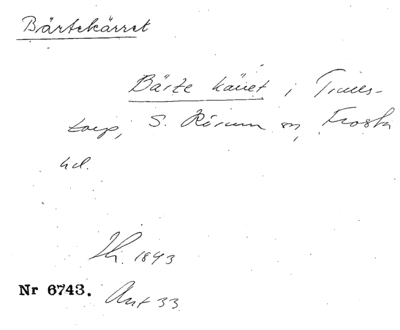 Bärtekärret
Bärte kärret i Tull-
torp, S. Rörum sn, Frosta
hd.
Th. 1843
Nr 6743. Ant 33